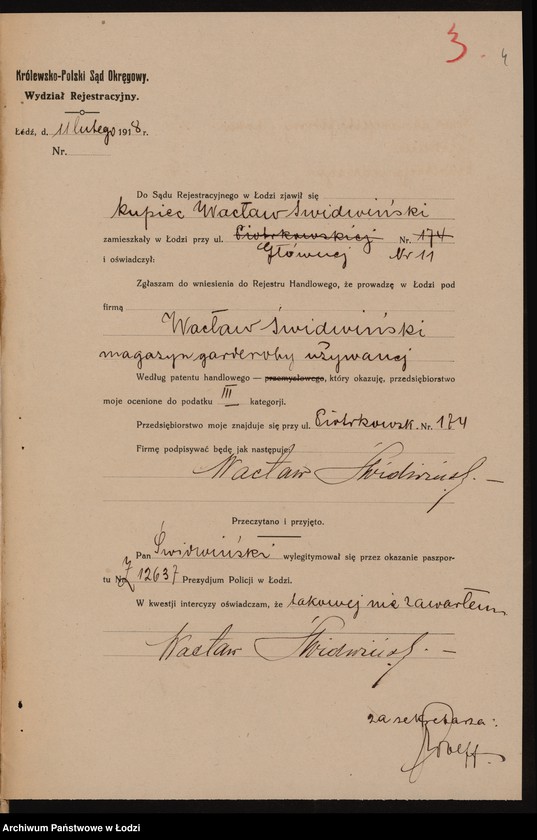 3. 4
Królewsko-Polski Sąd Okręgowy.
Wydział Rejestracyjny.
Łódź, d. 11 lutego 1918 r.
Nr.
Do Sądu Rejestracyjnego w Łodzi zjawił się
kupiec Wacław Świdwiński
zamieszkały w Łodzi przy ul. Piotrkowskiej Nr. 174
Głównej Nr 11
i oświadczył:
Zgłaszam do wniesienia do Rejestru Handlowego, że prowadzę w Łodzi pod
firmą
Wacław Świdwiński
magazyn garderoby używanej
Według patentu handlowego — przemysłowego, który okazuję, przedsiębiorstwo
moje ocenione do podatku III kategorji.
Przedsiębiorstwo moje znajduje się przy ul. Piotrkowsk. Nr. 174
Firmę podpisywać będę jak następuje:
Wacław Świdwiński. —
Przeczytano i przyjęto.
Pan Świdwiński wylegitymował się przez okazanie paszpor-
tu 12637 Prezydjum Policji w Łodzi.
W kwestji intercyzy oświadczam, że takowej nie zawarłem
Wacław Świdwiński. —
za sekretarza:
Archiwum Państwowe w Łodzi